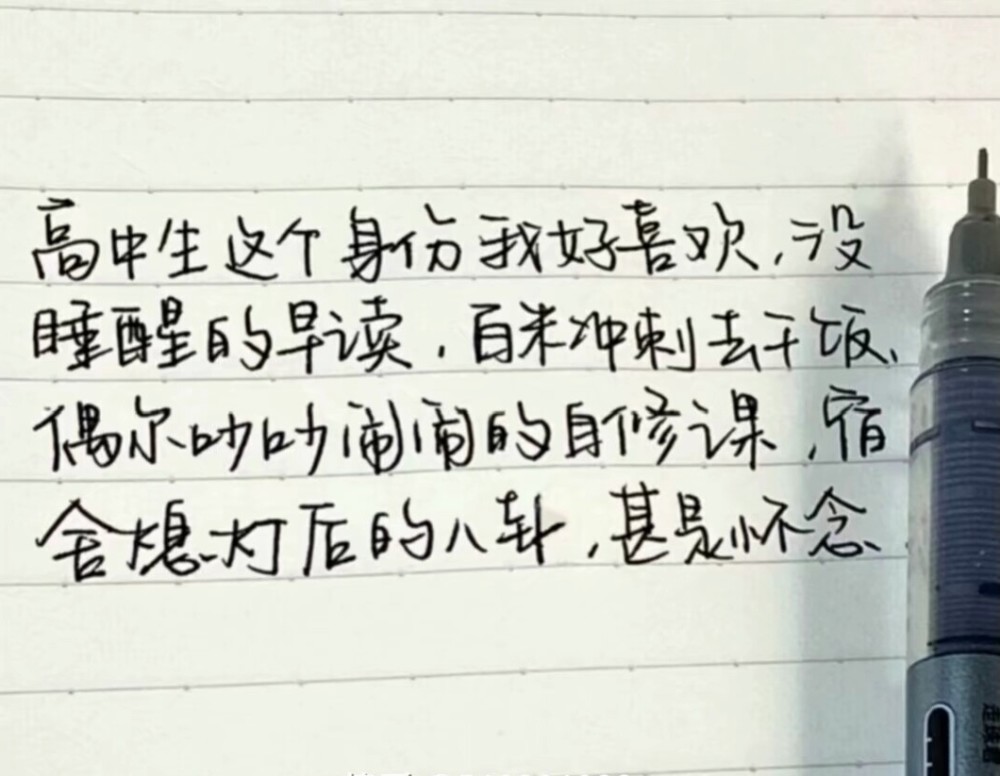 高中生这个身份我好喜欢,没
睡醒的早读,百米冲刺去干饭、
偶尔吵吵闹闹的自修课,宿
舍熄灯后的八卦,甚是怀念